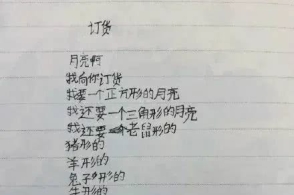 订货
月亮啊
我向你订货
我要一个正方形的月亮
我还要一个三角形的月亮
我还要一个老鼠形的
猪形的
羊形的
兔子形的
牛形的